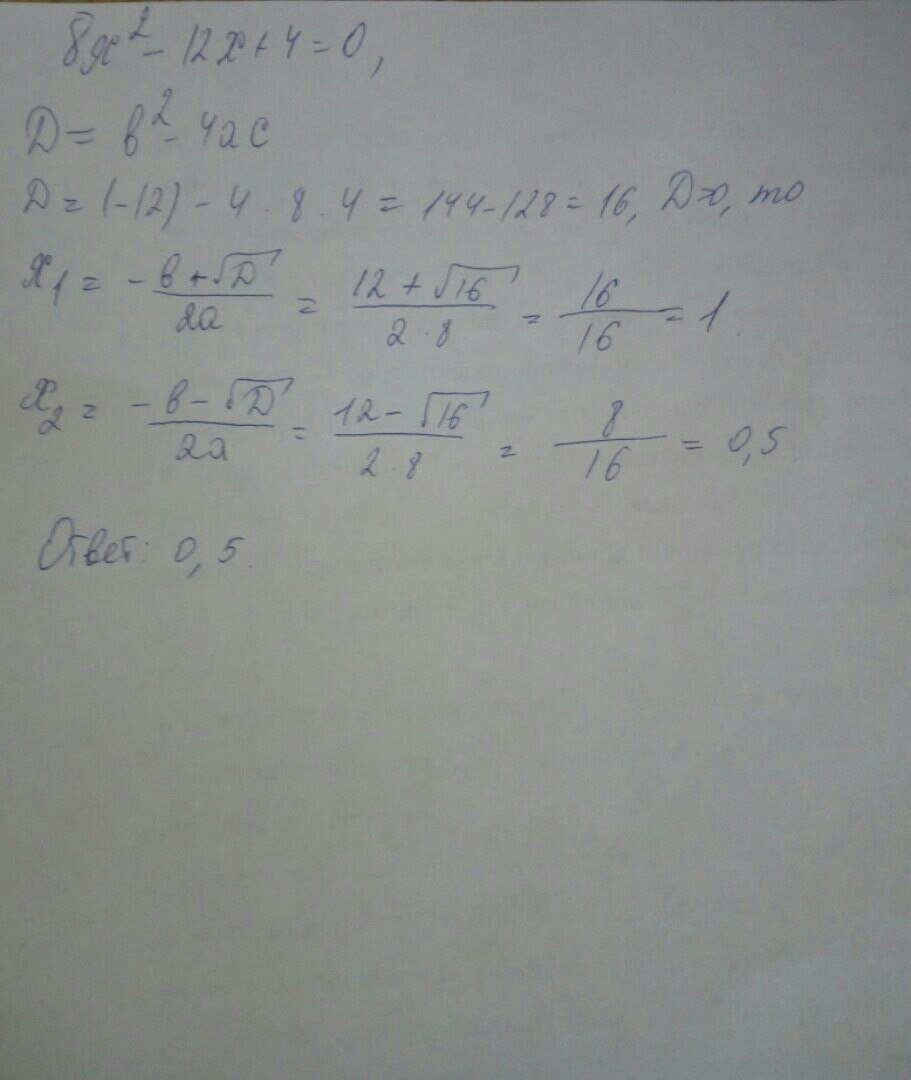 8x² - 12x + 4 = 0,
D = b² - 4ac
D = (-12) - 4 · 8 · 4 = 144 - 128 = 16, D>0, то
x₁ = -b+√D / 2a = 12 + √16 / 2 · 8 = 16 / 16 = 1.
x₂ = -b-√D / 2a = 12 - √16 / 2 · 8 = 8 / 16 = 0,5.
Ответ: 0,5.